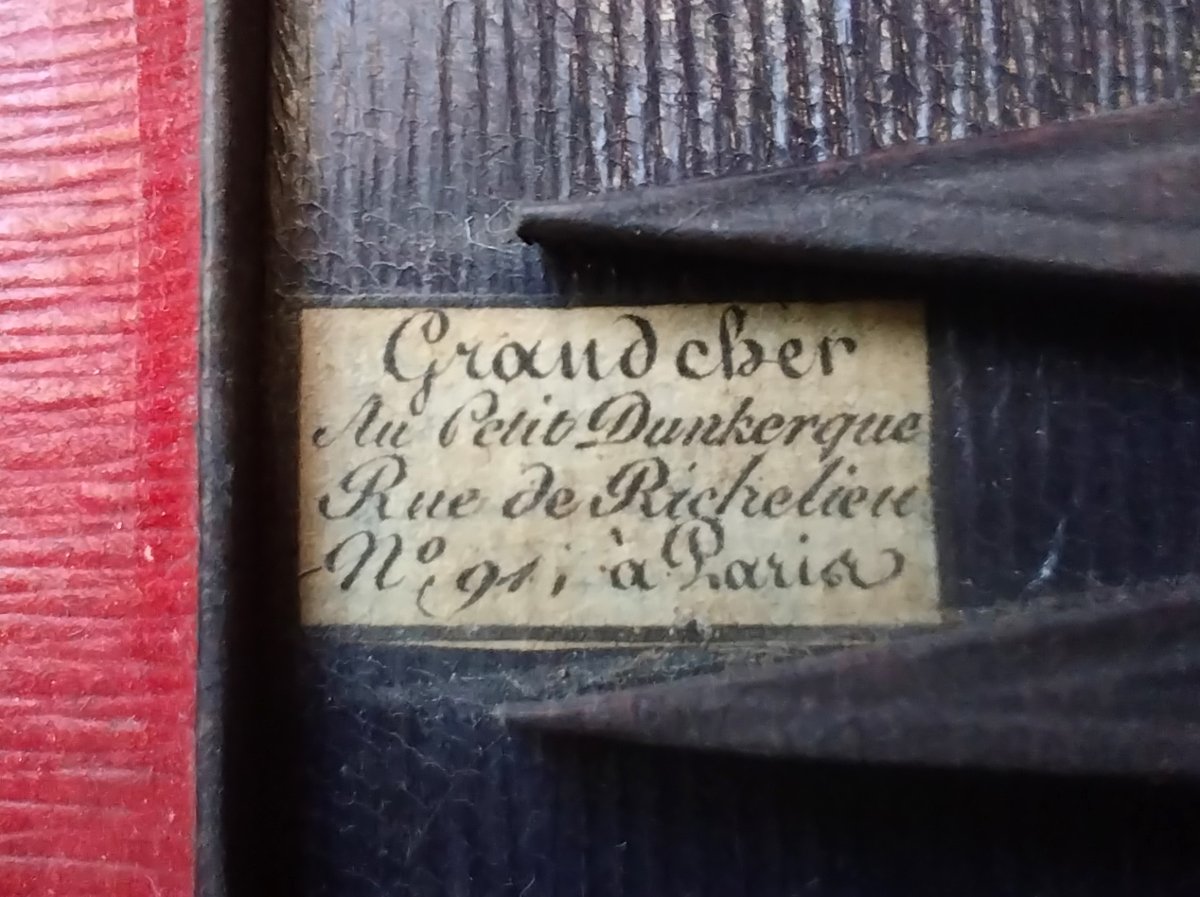 Grandcher
Au Petit Dunkerque
Rue de Richelieu
N° 91, à Paris